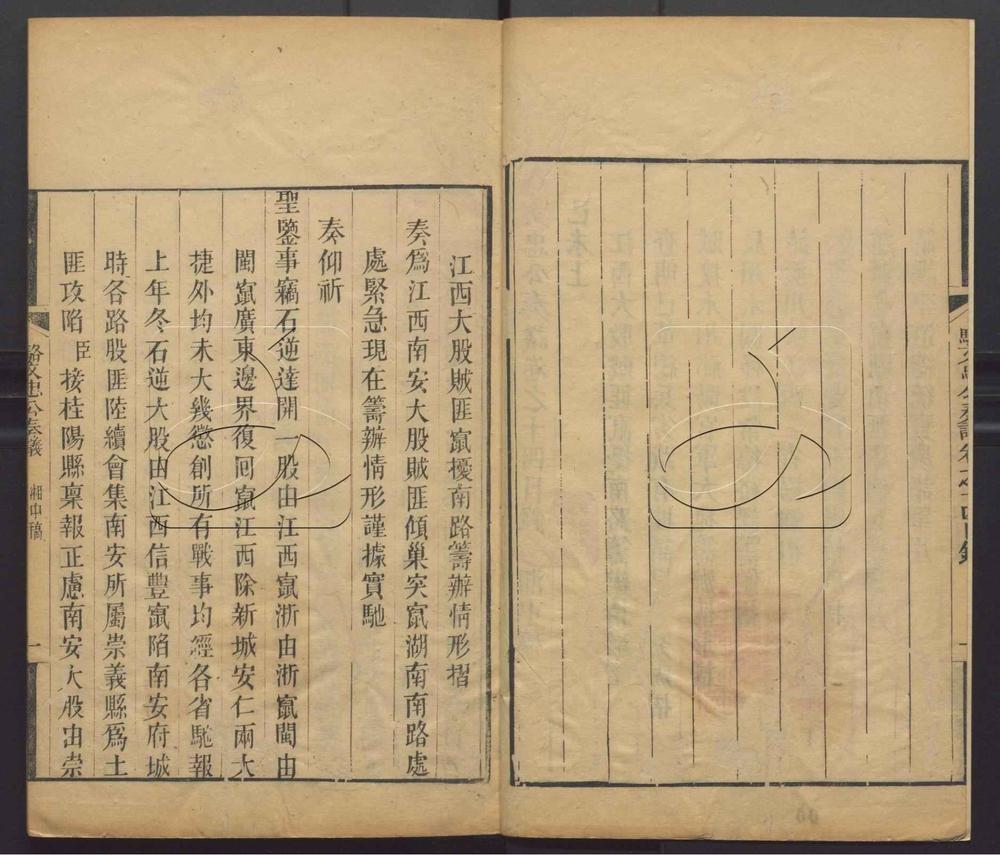 江西大股賊匪竄擾南路籌辦情形摺
奏爲江西南安大股賊匪傾巢突竄湖南南路處
處緊急現在籌辦情形謹據實馳
奏仰祈
聖鑒事竊石逆達開一股由江西竄浙由浙竄閩由
閩竄廣東邊界復回竄江西除新城安仁兩大
捷外均未大幾懲創所有戰事均經各省馳報
上年冬石逆大股由江西信豐竄陷南安府城
時各路股匪陸續會集南安所屬崇義縣爲土
匪攻陷臣接桂陽縣稟報正慮南安大股由崇
駱文忠公奏議 湘中稿 一